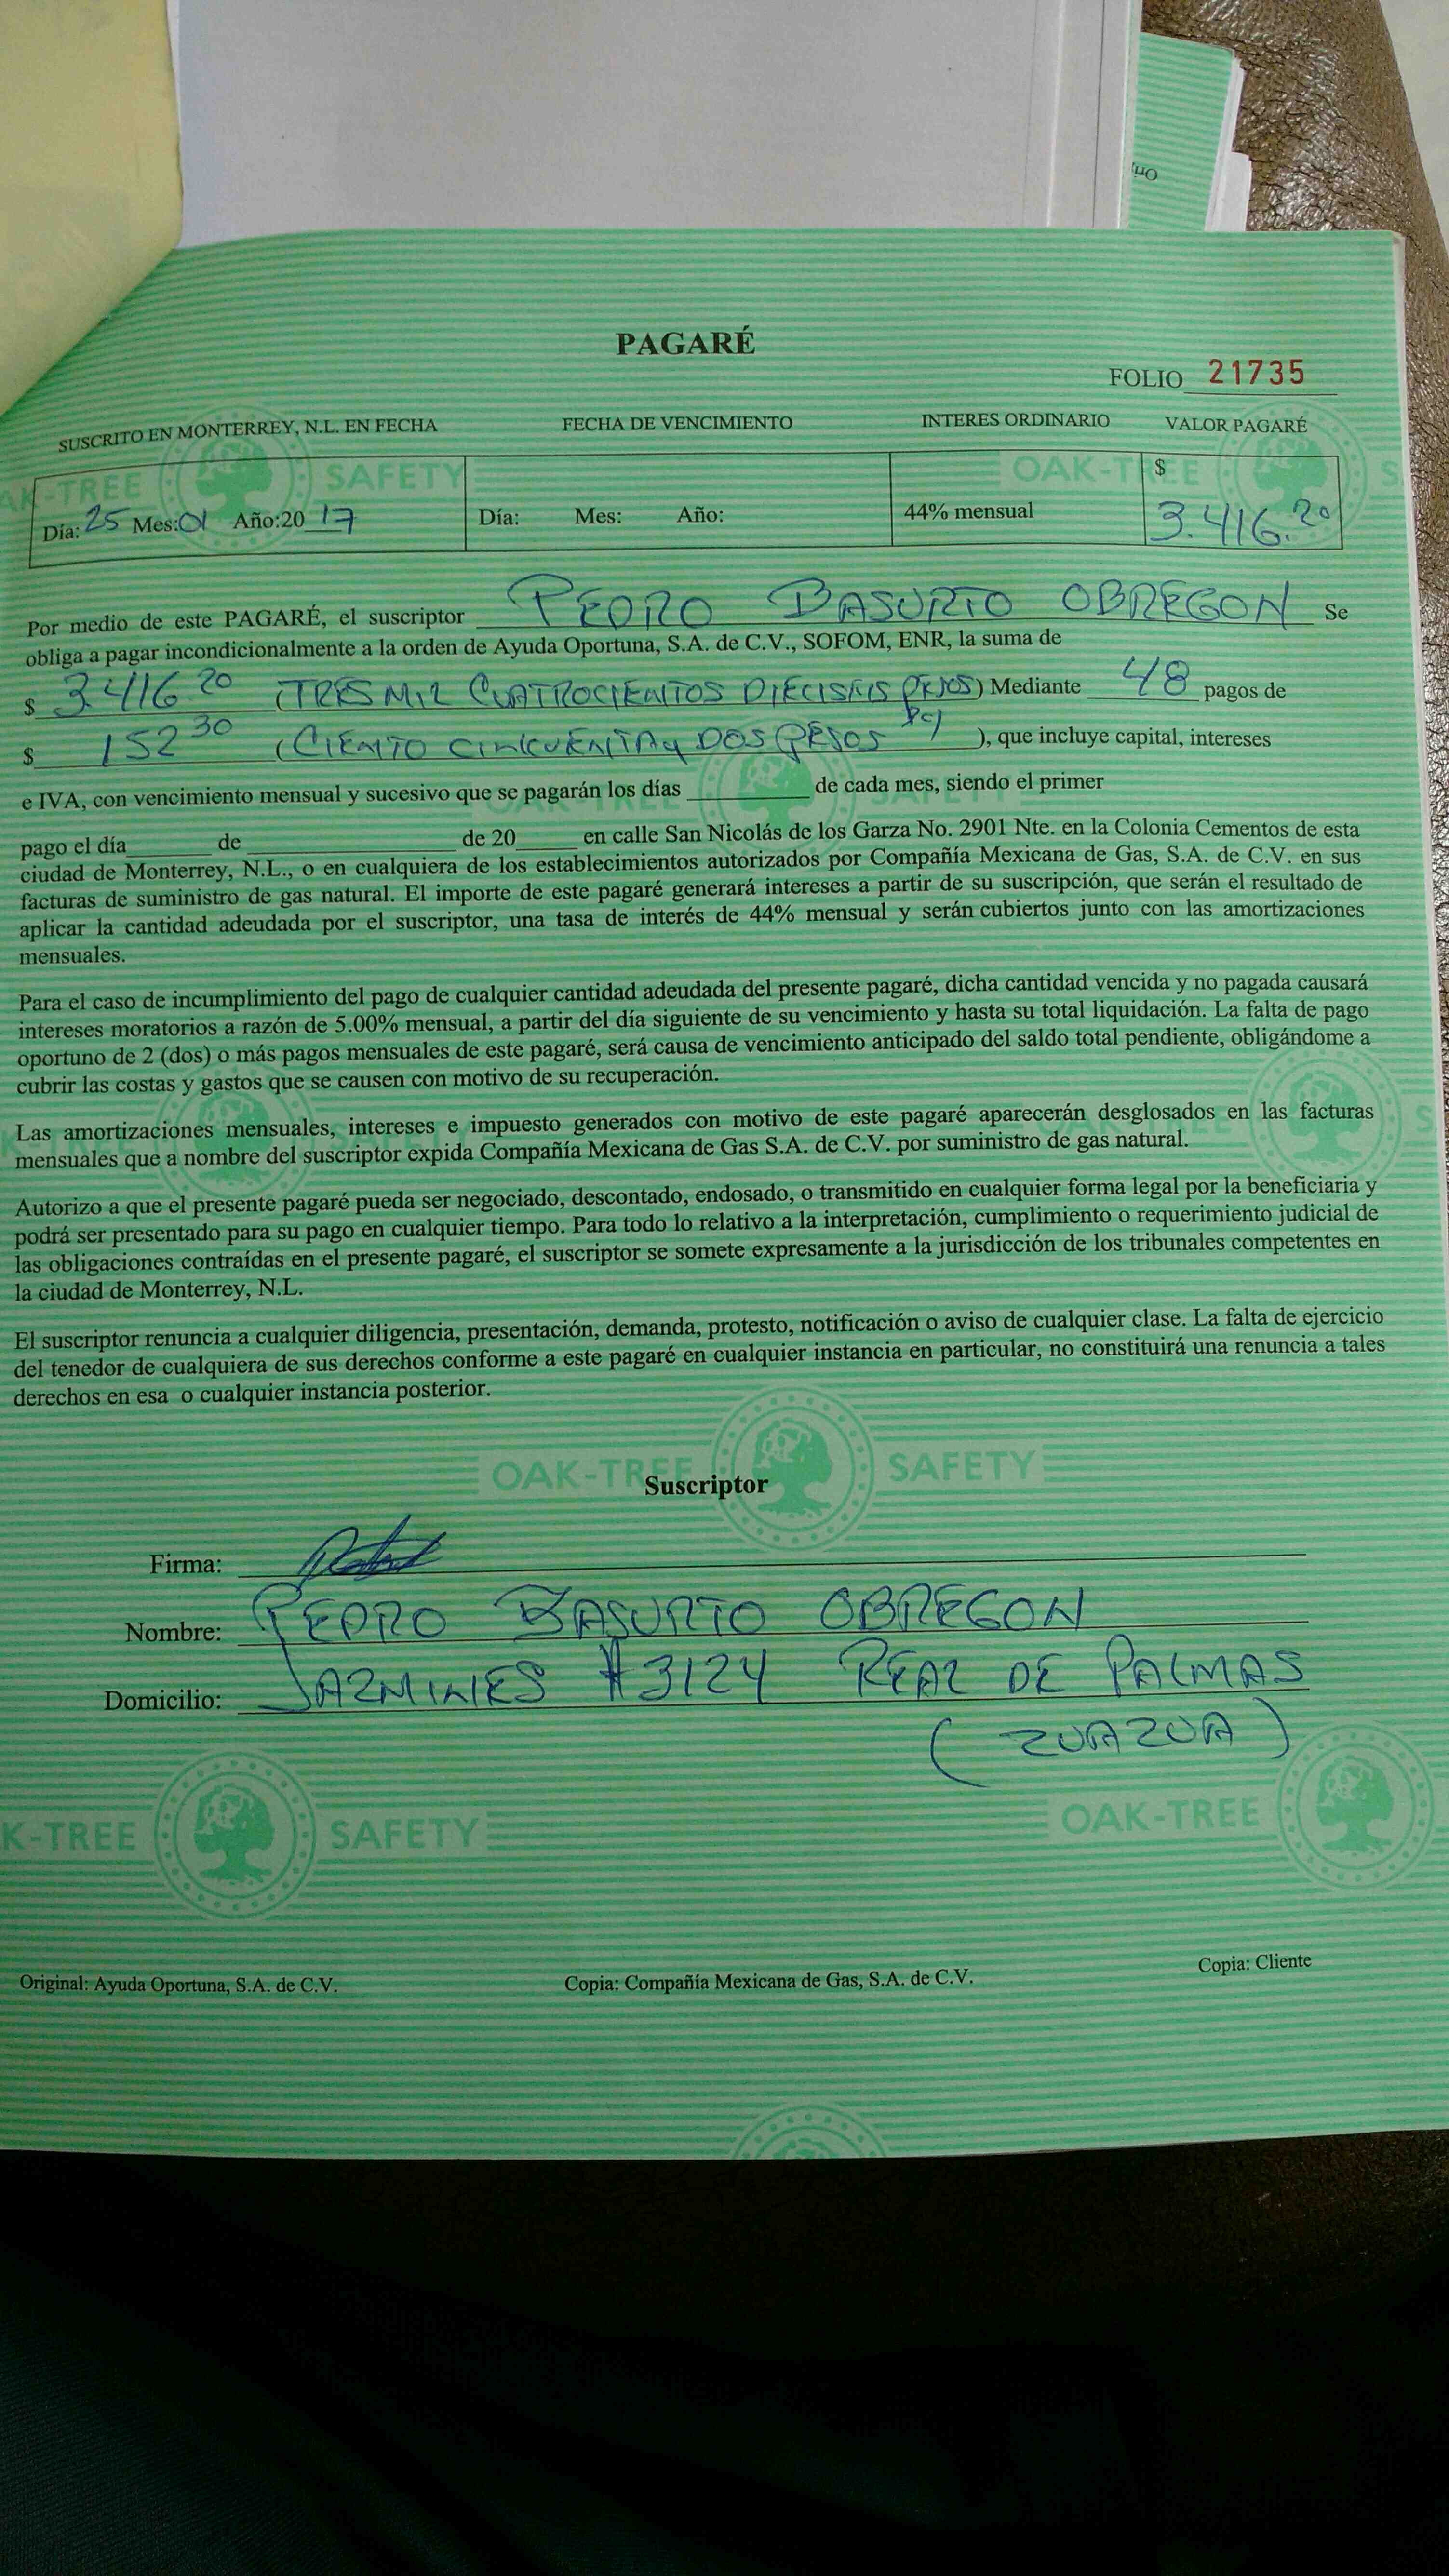 Ori
PAGARÉ
FOLIO 21735
SUSCRITO EN MONTERREY, N.L. EN FECHA FECHA DE VENCIMIENTO INTERES ORDINARIO VALOR PAGARÉ
Día: 25 Mes: 01 Año:20 17 Día: Mes: Año: 44% mensual $ 3.416.20
Por medio de este PAGARÉ, el suscriptor PEDRO BASURTO OBREGON Se
obliga a pagar incondicionalmente a la orden de Ayuda Oportuna, S.A. de C.V., SOFOM, ENR, la suma de
$ 3.416 20 (TRES MIL CUATROCIENTOS DIECISEIS PESOS) Mediante 48 pagos de
$ 152 30 (CIENTO CINCUENTA Y DOS PESOS ), que incluye capital, intereses
e IVA, con vencimiento mensual y sucesivo que se pagarán los días ________ de cada mes, siendo el primer
pago el día______ de ________________ de 20____ en calle San Nicolás de los Garza No. 2901 Nte. en la Colonia Cementos de esta
ciudad de Monterrey, N.L., o en cualquiera de los establecimientos autorizados por Compañía Mexicana de Gas, S.A. de C.V. en sus
facturas de suministro de gas natural. El importe de este pagaré generará intereses a partir de su suscripción, que serán el resultado de
aplicar la cantidad adeudada por el suscriptor, una tasa de interés de 44% mensual y serán cubiertos junto con las amortizaciones
mensuales.
Para el caso de incumplimiento del pago de cualquier cantidad adeudada del presente pagaré, dicha cantidad vencida y no pagada causará
intereses moratorios a razón de 5.00% mensual, a partir del día siguiente de su vencimiento y hasta su total liquidación. La falta de pago
oportuno de 2 (dos) o más pagos mensuales de este pagaré, será causa de vencimiento anticipado del saldo total pendiente, obligándome a
cubrir las costas y gastos que se causen con motivo de su recuperación.
Las amortizaciones mensuales, intereses e impuesto generados con motivo de este pagaré aparecerán desglosados en las facturas
mensuales que a nombre del suscriptor expida Compañía Mexicana de Gas S.A. de C.V. por suministro de gas natural.
Autorizo a que el presente pagaré pueda ser negociado, descontado, endosado, o transmitido en cualquier forma legal por la beneficiaria y
podrá ser presentado para su pago en cualquier tiempo. Para todo lo relativo a la interpretación, cumplimiento o requerimiento judicial de
las obligaciones contraídas en el presente pagaré, el suscriptor se somete expresamente a la jurisdicción de los tribunales competentes en
la ciudad de Monterrey, N.L.
El suscriptor renuncia a cualquier diligencia, presentación, demanda, protesto, notificación o aviso de cualquier clase. La falta de ejercicio
del tenedor de cualquiera de sus derechos conforme a este pagaré en cualquier instancia en particular, no constituirá una renuncia a tales
derechos en esa o cualquier instancia posterior.
OAK-TREE SAFETY
Suscriptor
Firma:
Nombre: PEDRO BASURTO OBREGON
Domicilio: JAZMINES #3124 REAL DE PALMAS
(ZUAZUA)
K-TREE SAFETY OAK-TREE
Original: Ayuda Oportuna, S.A. de C.V. Copia: Compañía Mexicana de Gas, S.A. de C.V. Copia: Cliente